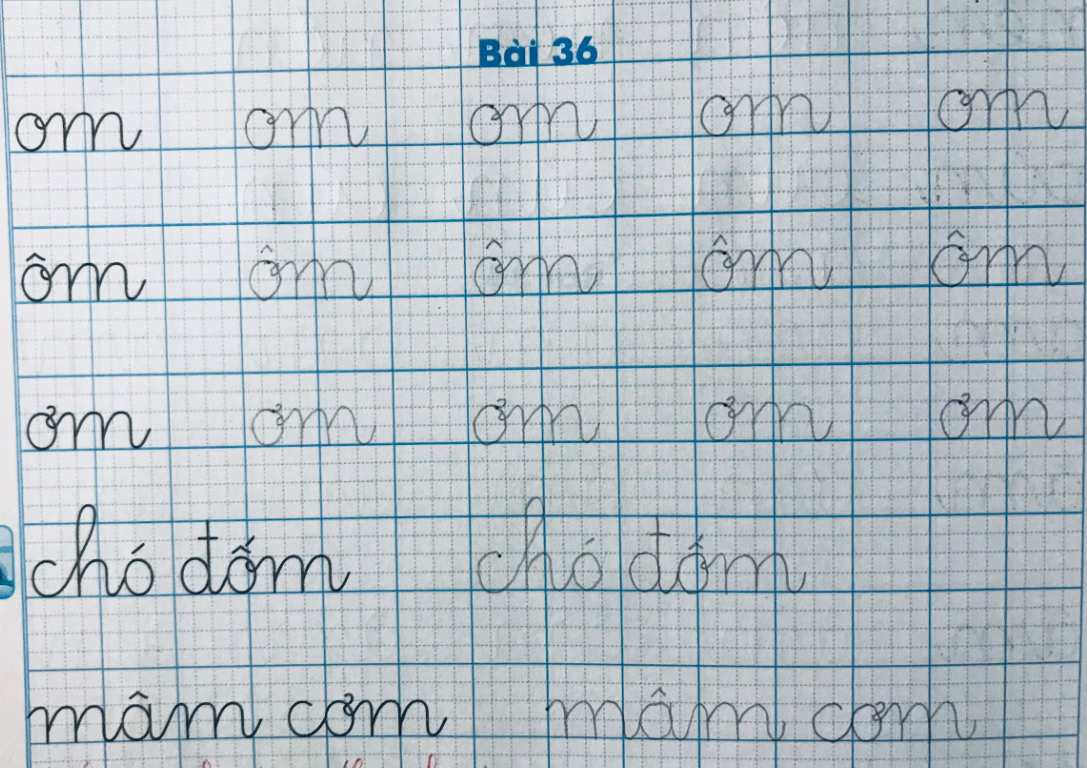 Bài 36
om om om om om
ôm ôm ôm ôm ôm
ơm ơm ơm ơm ơm
chó đốm chó đốm
mâm cơm mâm cơm